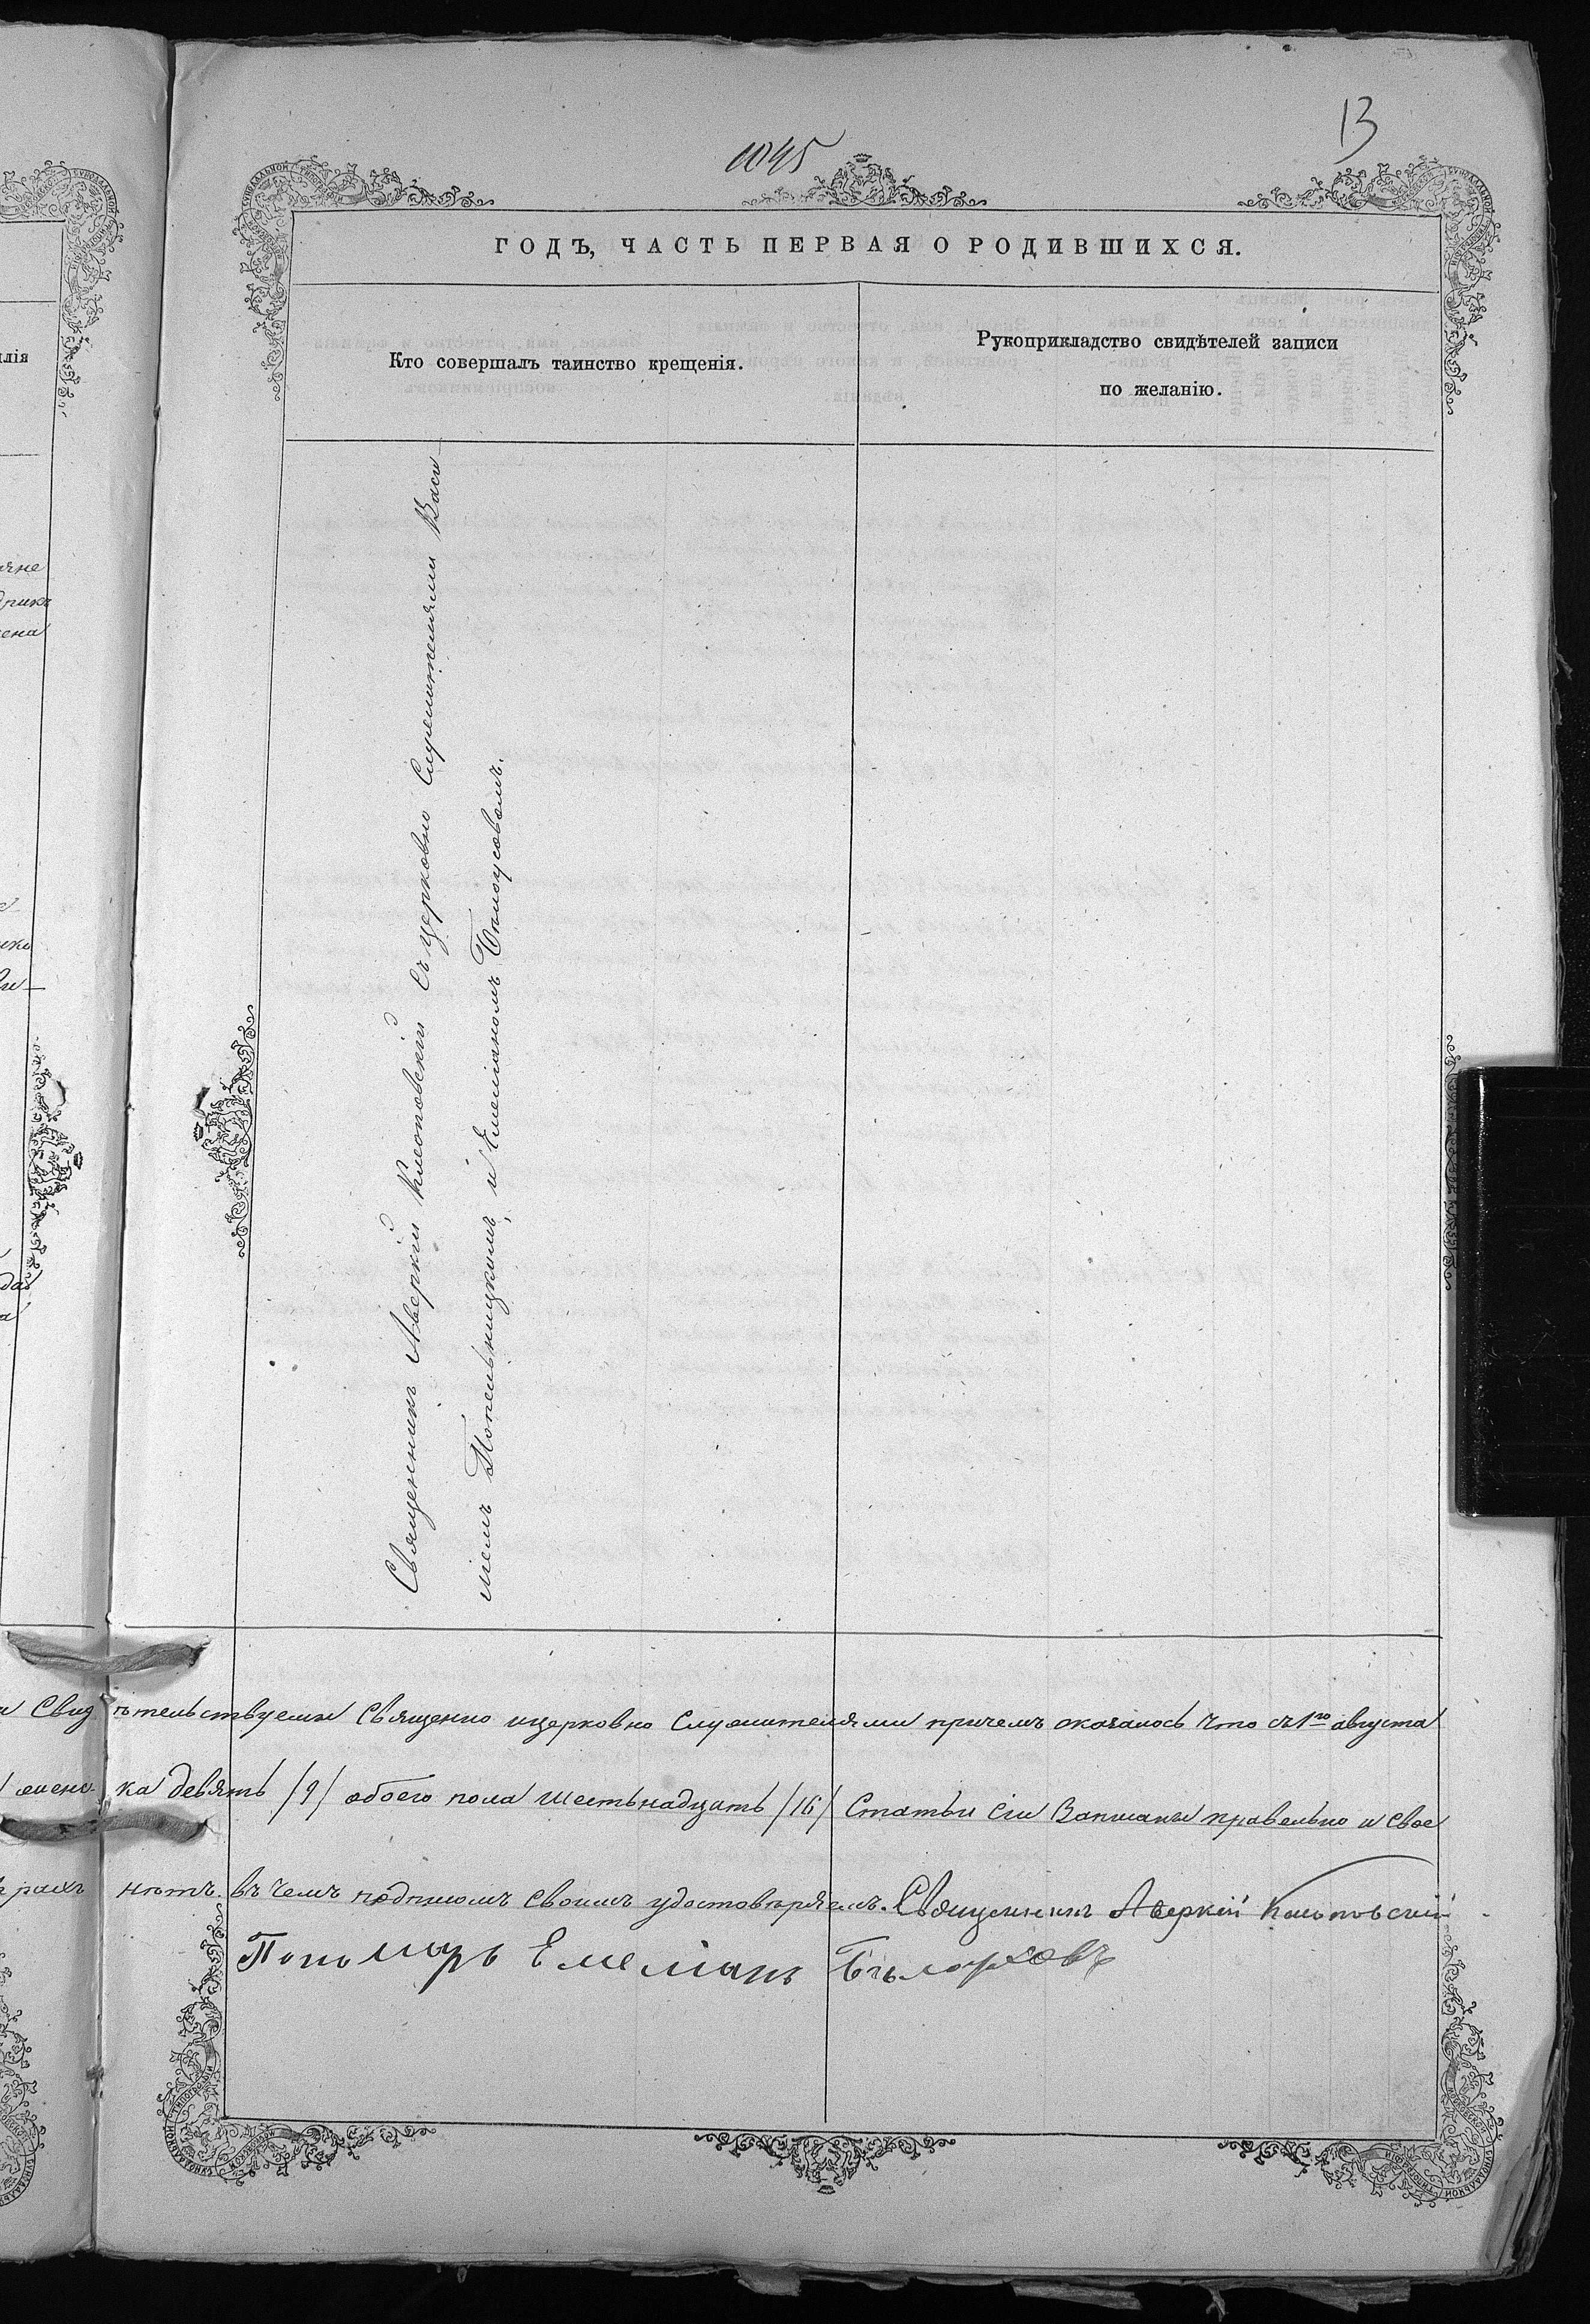 13
1045
ГОДЪ, ЧАСТЬ ПЕРВАЯ О РОДИВШИХСЯ.
Кто совершалъ таинство крещенія.
Рукоприкладство свидѣтелей записи
по желанію.
Священникъ Аверкій Клеповскій съ церковно Служителями Васи-
ліемъ Топельницкимъ, и Емеліаномъ Бѣлоусовомъ.
Свидѣтельствуемы Священно ицерковно Служителями причемъ оказалось что съ 1го августа
ка девять /9/ обоего пола шестьнадцать /16/ Статьи сіи Записаны правельно и
нѣтъ. въ чемъ подписомъ своимъ удостовѣряемъ. Священникъ Аверкій
Пономарь Емеліанъ Бѣлоусовъ